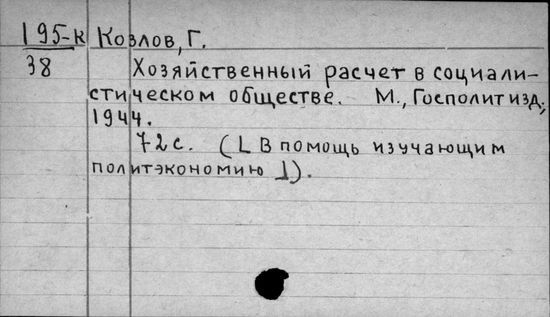 195-к Козлов, Г.
38 Хозяйственный расчет в социали-
стическом обществе. М., Госполитизд,
1944.
72 с. (L В помощь изучающим
политэкономию ⅃).